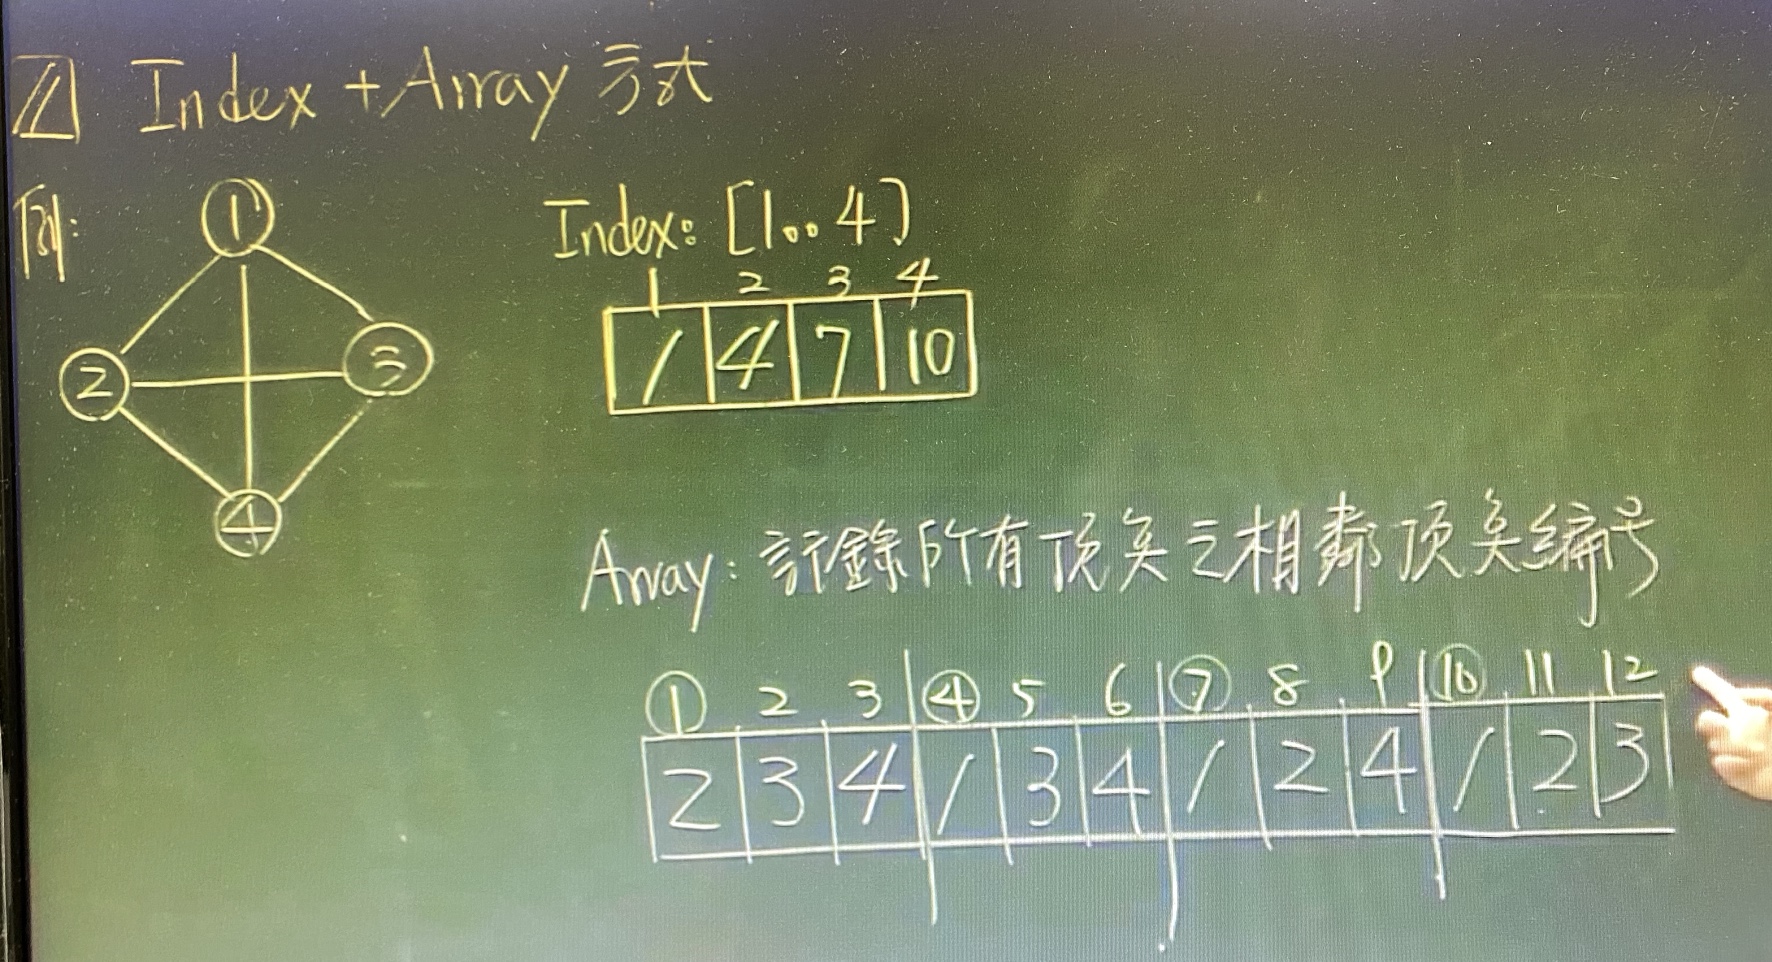 Index + Array 方式
例:
1
2
3
4
Index: [1..4]
1 2 3 4
1 4 7 10
Array: 記錄所有顶奌之相鄰顶奌編号
1 2 3 4 5 6 7 8 9 10 11 12
2 3 4 1 3 4 1 2 4 1 2 3